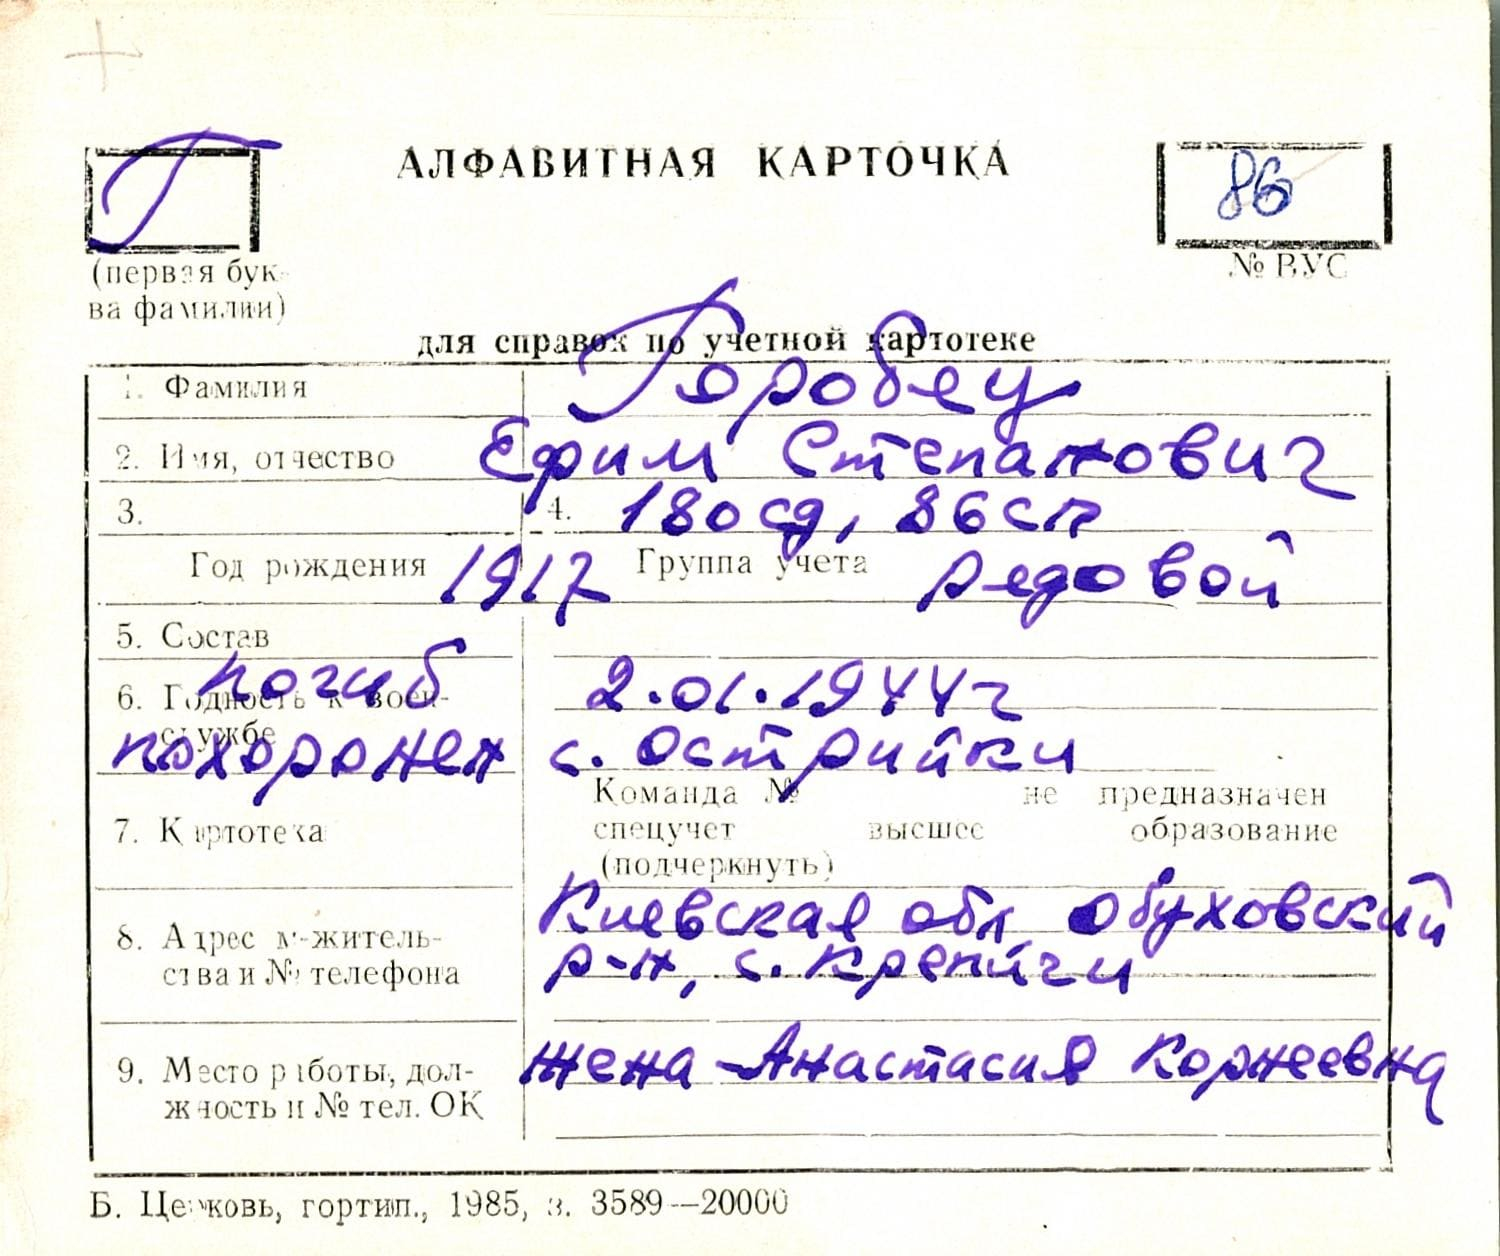 Г
АЛФАВИТНАЯ КАРТОЧКА
86
(первая бук-
ва фамилии)
№ ВУС
для справок по учетной картотеке
1. Фамилия Горобец
2. Имя, отчество Ефим Степанович
3. 4. 180 сд, 86 сп
Год рождения 1917 Группа учета рядовой
5. Состав
погиб 2.01.1944 г
6. Годность к воен-
службе
похоронен с. Острийки
Команда № не предназначен
7. Картотека спецучет высшее образование
(подчеркнуть)
Киевская обл, Обуховский
8. Адрес м-житель- р-н, с. Крепичи
ства и № телефона
9. Место работы, дол- жена - Анастасия Корнеевна
жность и № тел. ОК
Б. Церковь, гортип., 1985, з. 3589—20000